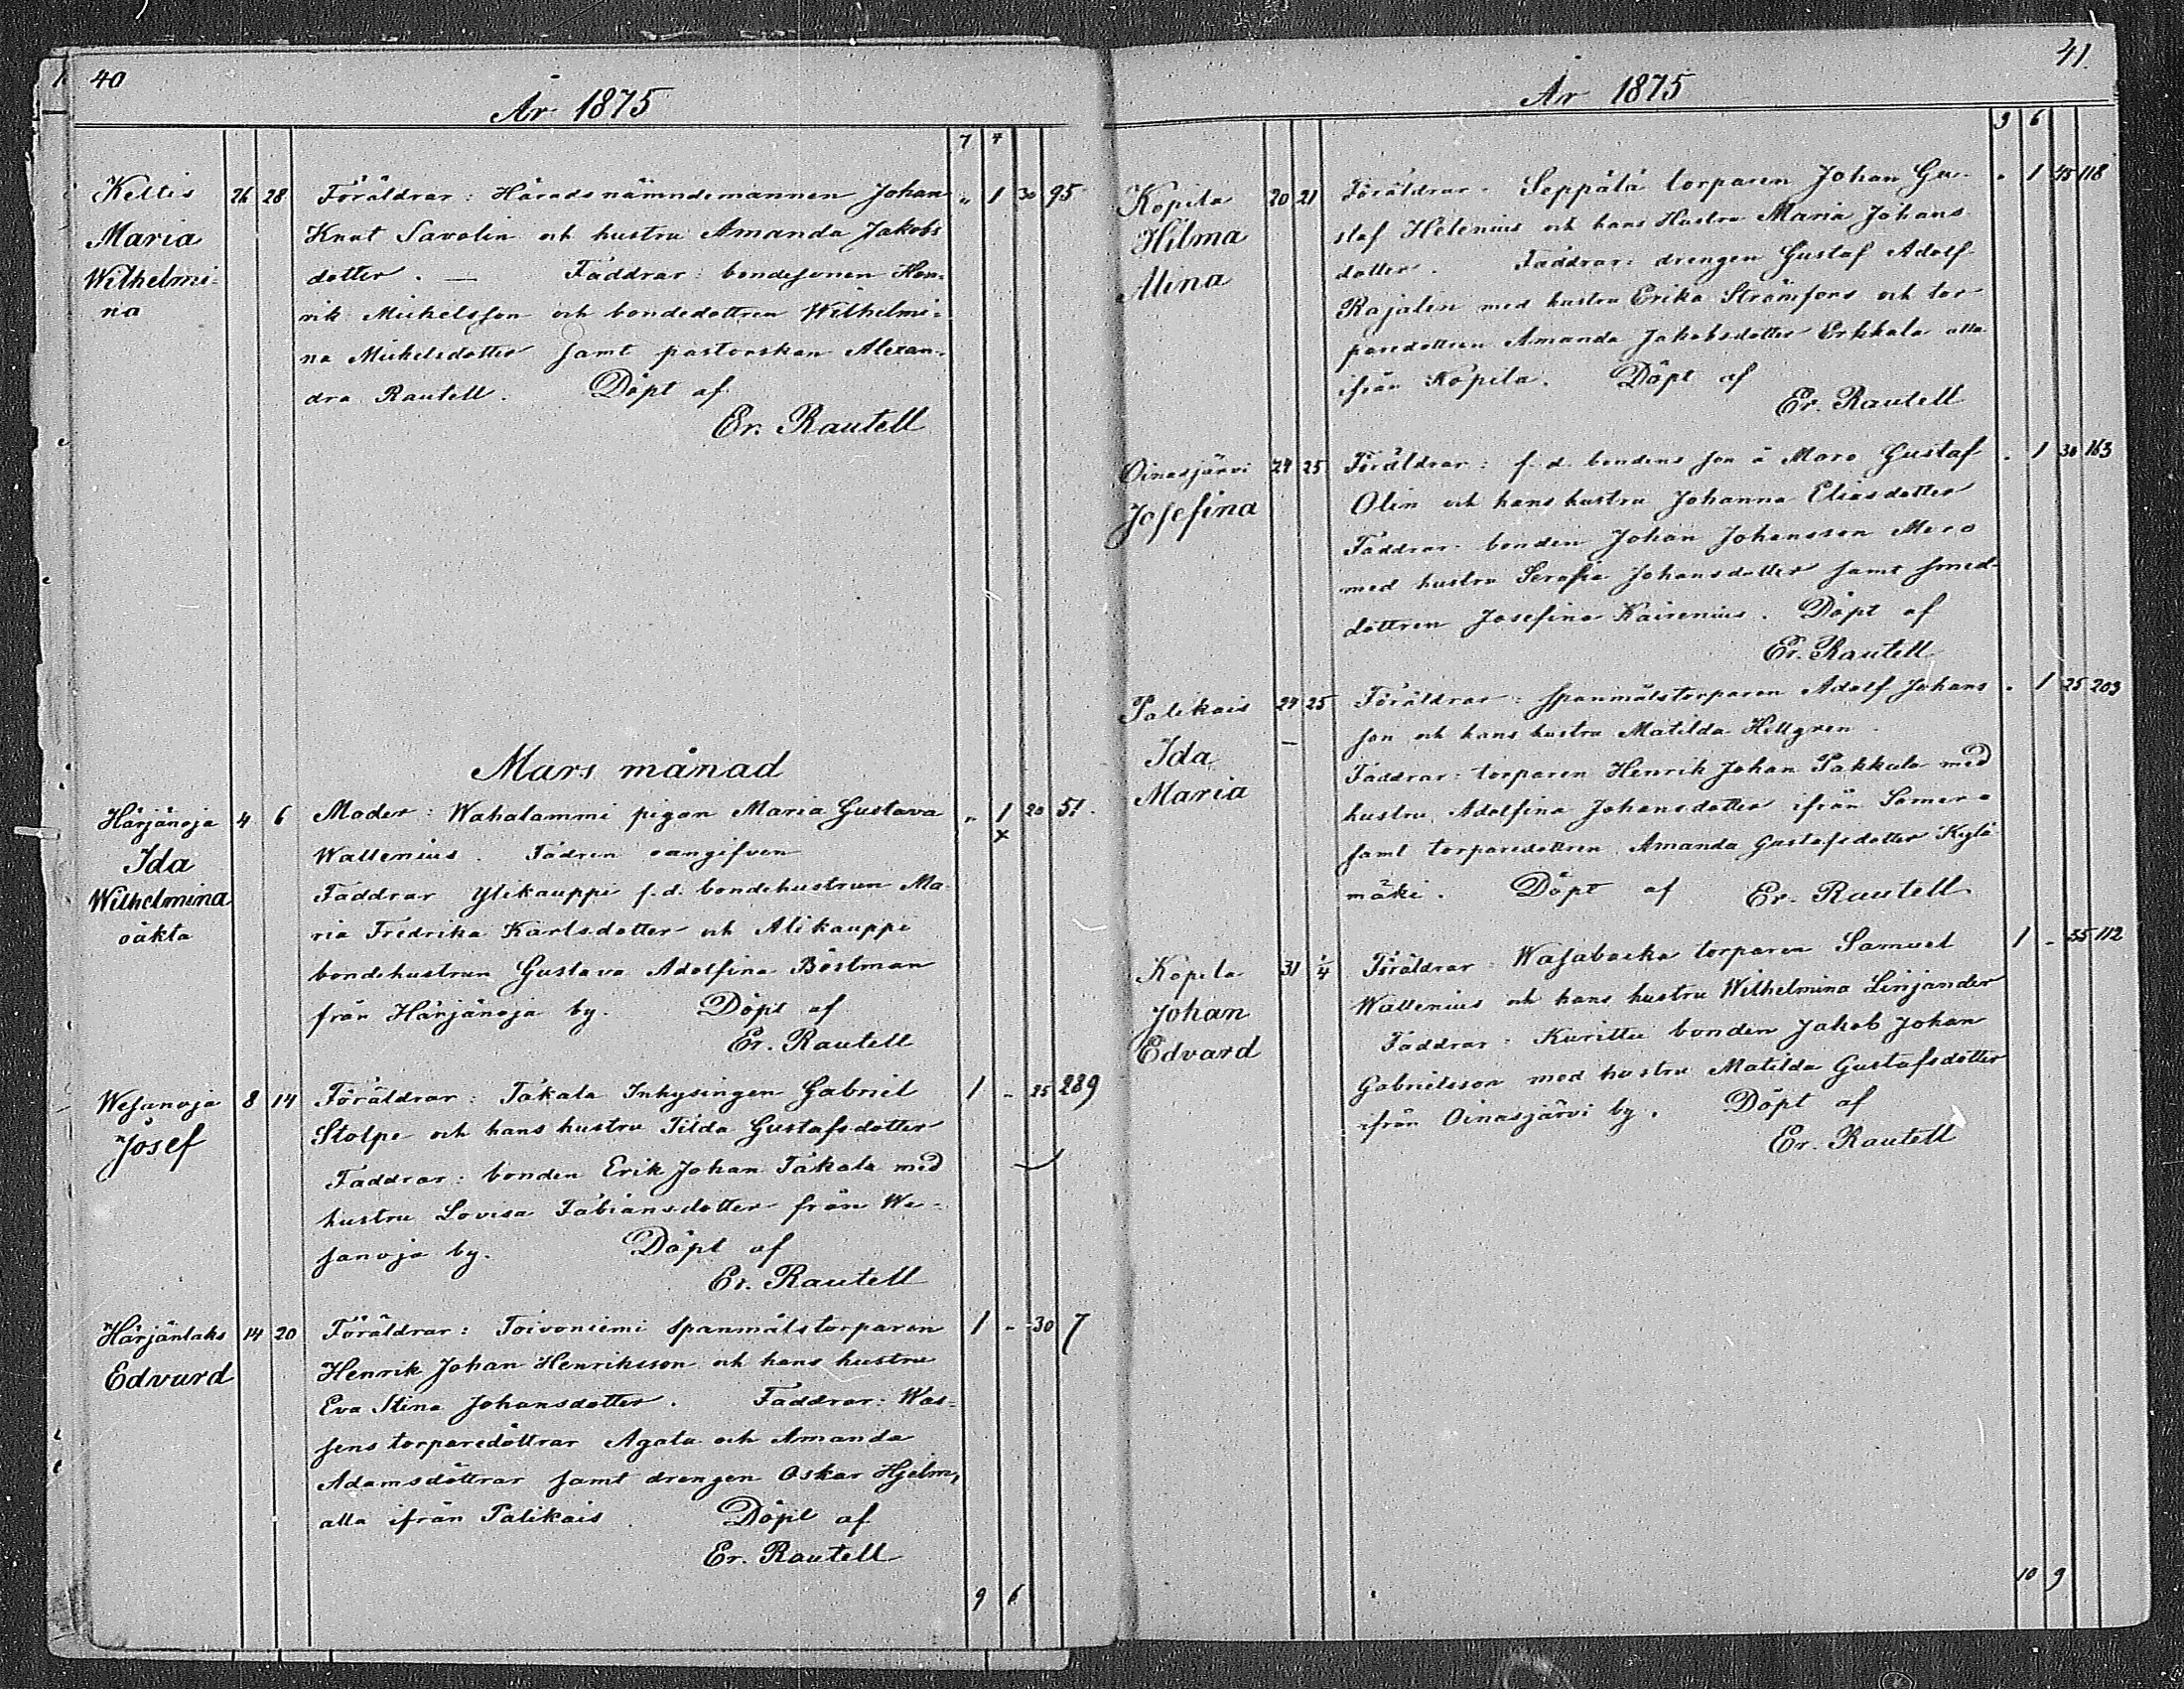 40
År 1875
7 4
Keltis 26 28 Föräldrar: Häradsnämndemannen Johan „ 1 30 95
Maria Knut Savolin och hustru Amanda Jakobs
Wilhelmi- dotter. — Faddrar: bondesonen Hen-
na rik Michelsson och bondedottren Wilhelmi-
na Michelsdotter samt pastorskan Alexan-
dra Rautell. Döpt af
Er. Rautell
Mars månad
Härjänoja 4 6 Moder: Wahalammi pigan Maria Gustava „ 1 20 51.
Ida Wallenius. Fadren oangifven x
Wilhelmina Faddrar Ylikauppi f.d. bondehustrun Ma-
oäkta ria Fredrika Karlsdotter och Alikauppi
bondehustrun Gustava Adolfina Böstman
från Härjänoja by. Döpt af
Er. Rautell
Wesanoja 8 14 Föräldrar: Takala Inhysingen Gabriel 1 - 25 289
Josef Stolpe och hans hustru Tilda Gustafsdotter
Faddrar: bonden Erik Johan Takala med
hustru Lovisa Fabiansdotter från We-
sanoja by. Döpt af
Er. Rautell
Härjänlaks 14 20 Föräldrar: Toivoniemi Spanmålstorparen 1 - 30 7
Edvard Henrik Johan Henriksson och hans hustru
Eva Stina Johansdotter. Faddrar: Was-
sens torparedöttrar Agata och Amanda
Adamsdöttrar samt drengen Oskar Hjelm,
alla ifrån Palikais. Döpt af
Er. Rautell
9 6
41.
År 1875
9 6
Kopila 20 21 Föräldrar: Seppälä torparen Johan Gu- „ 1 118
Hilma staf Helenius och hans Hustru Maria Johans
Alina dotter. Faddrar: drengen Gustaf Adolf
Rajalin med hustru Erika Strömfors och tor
paredottren Amanda Jakobsdotter Erkkala alla
ifrån Kopila. Döpt af
Er. Rautell
Oinasjärvi 24 25 Föräldrar: f.d. bondens son å Moro Gustaf „ 1 30 163
Josefina Olin och hans hustru Johanna Eliasdotter
Faddrar: bonden Johan Johansson Moro
med hustru Serafia Johansdotter samt smed-
dottren Josefina Kairenius. Döpt af
Er. Rautell
Palikais 24 25 Föräldrar: Spanmålstorparen Adolf Johans „ 1 25 203
Ida — son och hans hustru Matilda Hellgren.
Maria Faddrar: torparen Henrik Johan Pakkala med
hustru Adolfina Johansdotter ifrån Somero
samt torparedottren Amanda Gustafsdotter Kylä
mäki. Döpt af Er. Rautell
Kopila 31 1/4 Föräldrar: Wasabacka torparen Samuel 1 - 55 112
Johan Wallenius och hans hustru Wilhelmina Linjander
Edvard Faddrar: Kurittu bonden Jakob Johan
Gabrielsson med hustru Matilda Gustafsdotter
ifrån Oinasjärvi by. Döpt af
Er. Rautell
10 9